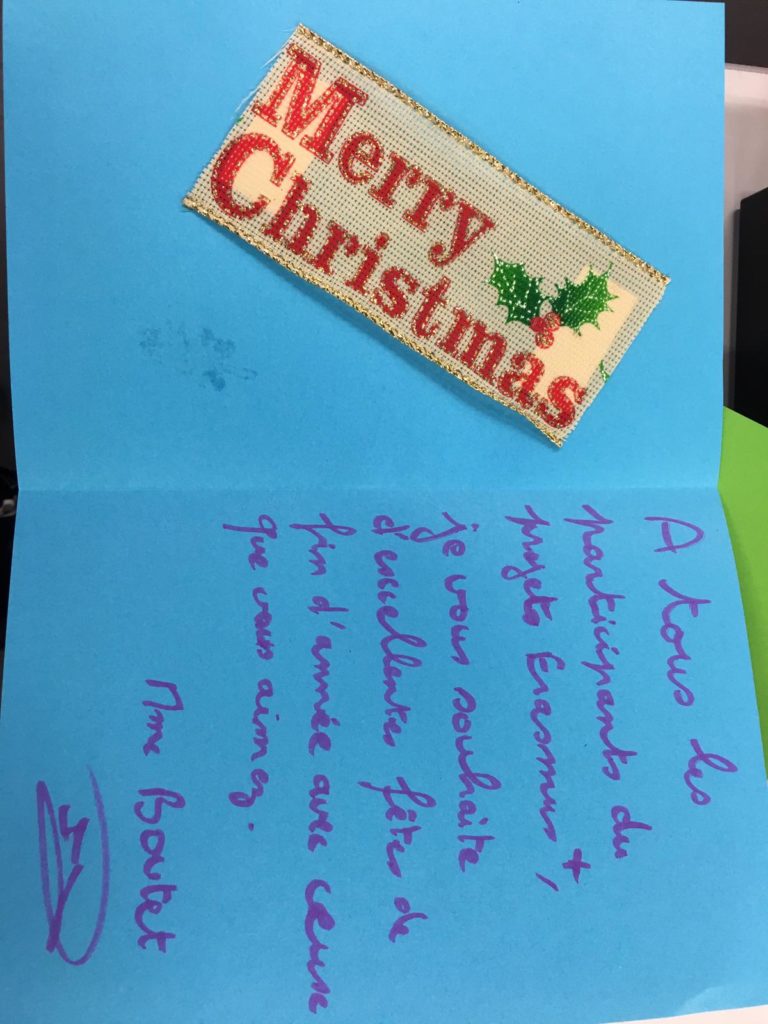 Merry
Christmas
A tous les
participants du
projets Erasmus +,
je vous souhaite
d'excellentes fêtes de
fin d'année avec ceuse
que vous aimez.
Mme Boutet